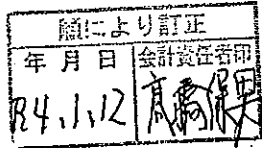 願により訂正
年月日 会計責任者印
R4.1.12 髙橋保男